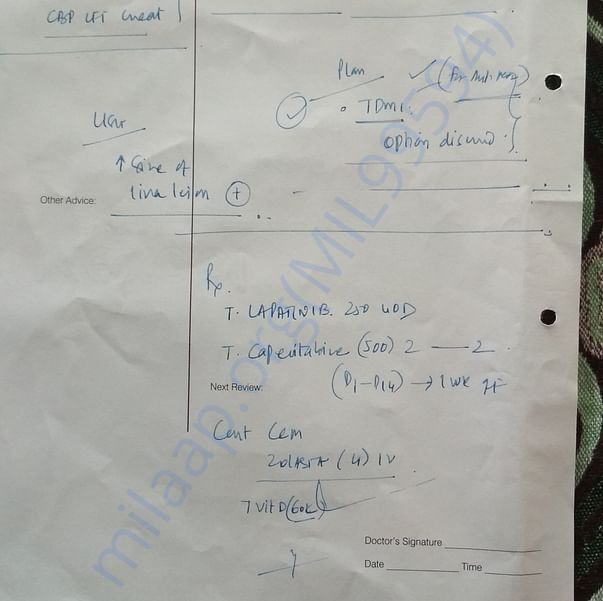 CBP LFT Creat
Plan
TDM1.
option discussed
USG
↑ Size of
liver lesion +
Other Advice:
Rx.
T. LAPATINIB. 250 4OD
T. Capecitabine (500) 2 — 2.
(D1-D14) → 1 wk
Next Review:
Cont
ZOLASTA (4) IV
T VIT D (60K)
Doctor's Signature
Date Time
milaap.org(MIL99594)